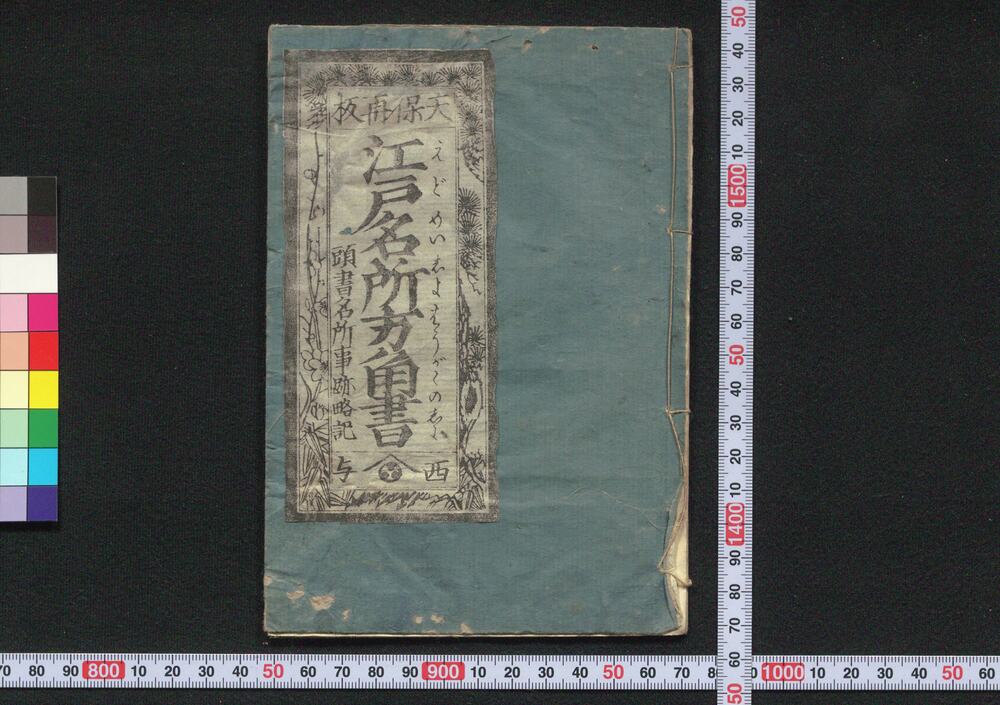 天保再板
えどめいしよほうがくのしよ
江戸名所方角書
頭書名所事跡略記
西 与
50
40
30
20
10
1500
90
80
70
60
50
40
30
20
10
1400
90
80
70
60
50
70 80 90 800 10 20 30 40 50 60 70 80 90 900 10 20 30 40 50 60 70 80 1000 10 20 30 40 50 60